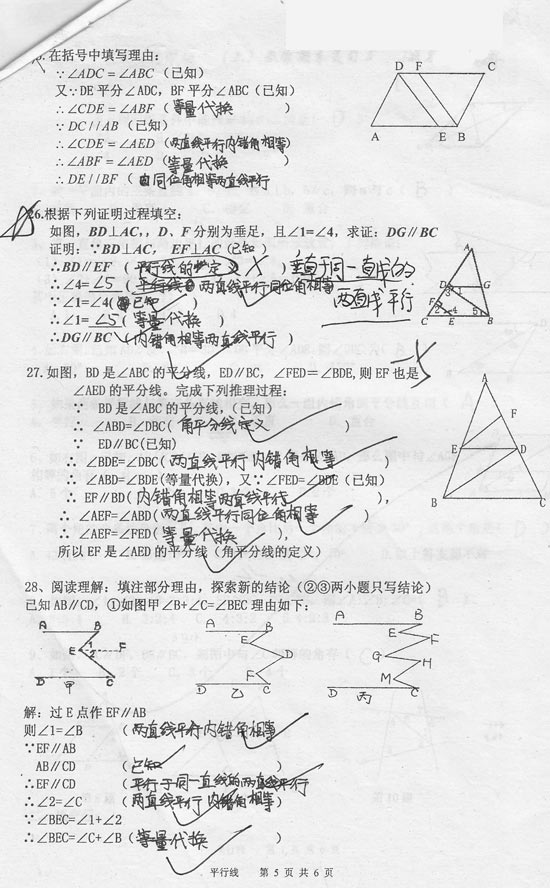 在括号中填写理由:
∵∠ADC=∠ABC(已知)
又∵DE平分∠ADC,BF平分∠ABC(已知)
∴∠CDE=∠ABF(等量代换)
∵DC//AB(已知)
∴∠CDE=∠AED(两直线平行内错角相等)
∴∠ABF=∠AED(等量代换)
∴DE//BF(由同位角相等两直线平行
D F C
A E B
26.根据下列证明过程填空:
如图,BD⊥AC,,D、F分别为垂足,且∠1=∠4,求证:DG∥BC
证明:∵BD⊥AC, EF⊥AC(已知)
∴BD∥EF(平行线的定义)垂直于同一直线的
两直线平行
∴∠4=∠5(两直线平行同位角相等
∵∠1=∠4(已知)
∴∠1=∠5(等量代换)
∴DG∥BC(内错角相等两直线平行)
A
D G
3 1
F
2 4 5
C E B
27.如图,BD是∠ABC的平分线,ED∥BC,∠FED=∠BDE,则EF也是
∠AED的平分线。完成下列推理过程:
∵ BD是∠ABC的平分线,(已知)
∴ ∠ABD=∠DBC(角平分线定义)
∵ ED∥BC(已知)
∴ ∠BDE=∠DBC(两直线平行内错角相等)
∴ ∠ABD=∠BDE(等量代换),又∵∠FED=∠BDE(已知)
∴ EF∥BD(内错角相等两直线平行),
∴ ∠AEF=∠ABD(两直线平行同位角相等)
∴ ∠AEF=∠FED(等量代换),
所以EF是∠AED的平分线(角平分线的定义)
A
F
E D
B C
28、阅读理解:填注部分理由,探索新的结论(②③两小题只写结论)
已知AB∥CD,①如图甲∠B+∠C=∠BEC理由如下:
A B
E 1 2 F
D 甲 C
A B
E
F
D 乙 C
A B
E F
G H
M
D 丙 C
解:过E点作EF∥AB
则∠1=∠B(两直线平行内错角相等
∵EF∥AB
AB∥CD(已知)
∴EF∥CD(平行于同一直线的两直线平行
∴∠2=∠C(两直线平行内错角相等)
∵∠BEC=∠1+∠2
∴∠BEC=∠C+∠B(等量代换)
平行线 第 5 页 共 6 页